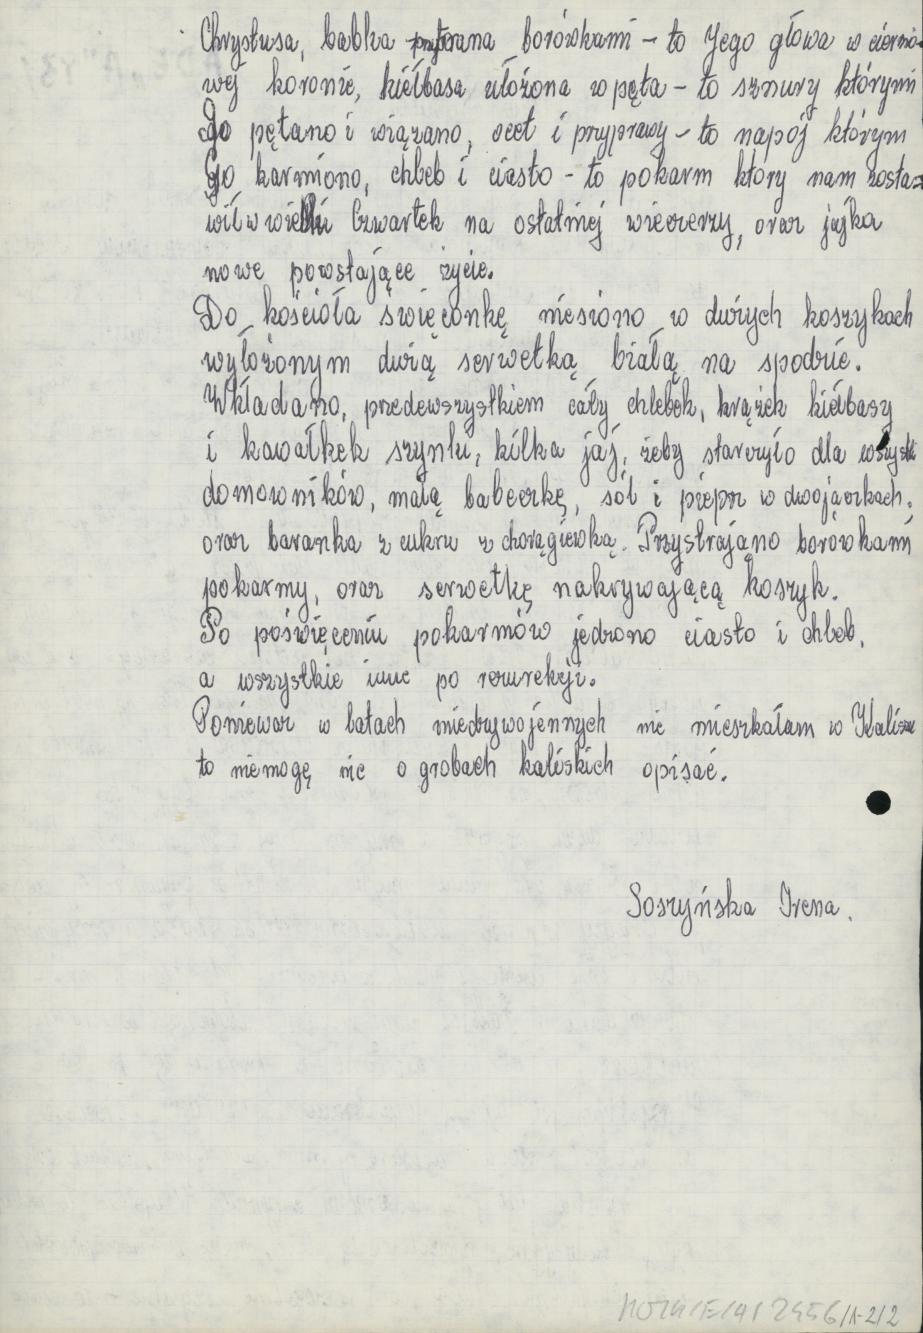 Chrystusa, babka przybrana borówkami – to Jego głowa w ciernio-
wej koronie, kiełbasa ułożona w pęta – to sznury którymi
Go pętano i wiązano, ocet i przyprawy – to napój którym
Go karmiono, chleb i ciasto – to pokarm który nam zosta-
wił w wielki Czwartek na ostatniej wieczerzy, oraz jajka
nowe powstające życie.
Do kościoła święconkę niesiono w dużych koszykach
wyłożonym dużą serwetką białą na spodzie.
Wkładano, przedewszystkiem cały chlebek, krążek kiełbasy
i kawałkek szynki, kilka jaj, żeby starczyło dla wszystk
domowników, małą babeczkę, sól i pieprz w dwojaczkach,
oraz baranka z cukru z chorągiewką. Przystrajano borówkami
pokarmy, oraz serwetkę nakrywającą koszyk.
Po poświęceniu pokarmów jedzono ciasto i chleb,
a wszystkie inne po rezurekcji.
Ponieważ w latach miedzywojennych nie mieszkałam w Kaliszu
to niemogę nic o grobach kaliskich opisać.
Soszyńska Irena.
2456/1-2/2